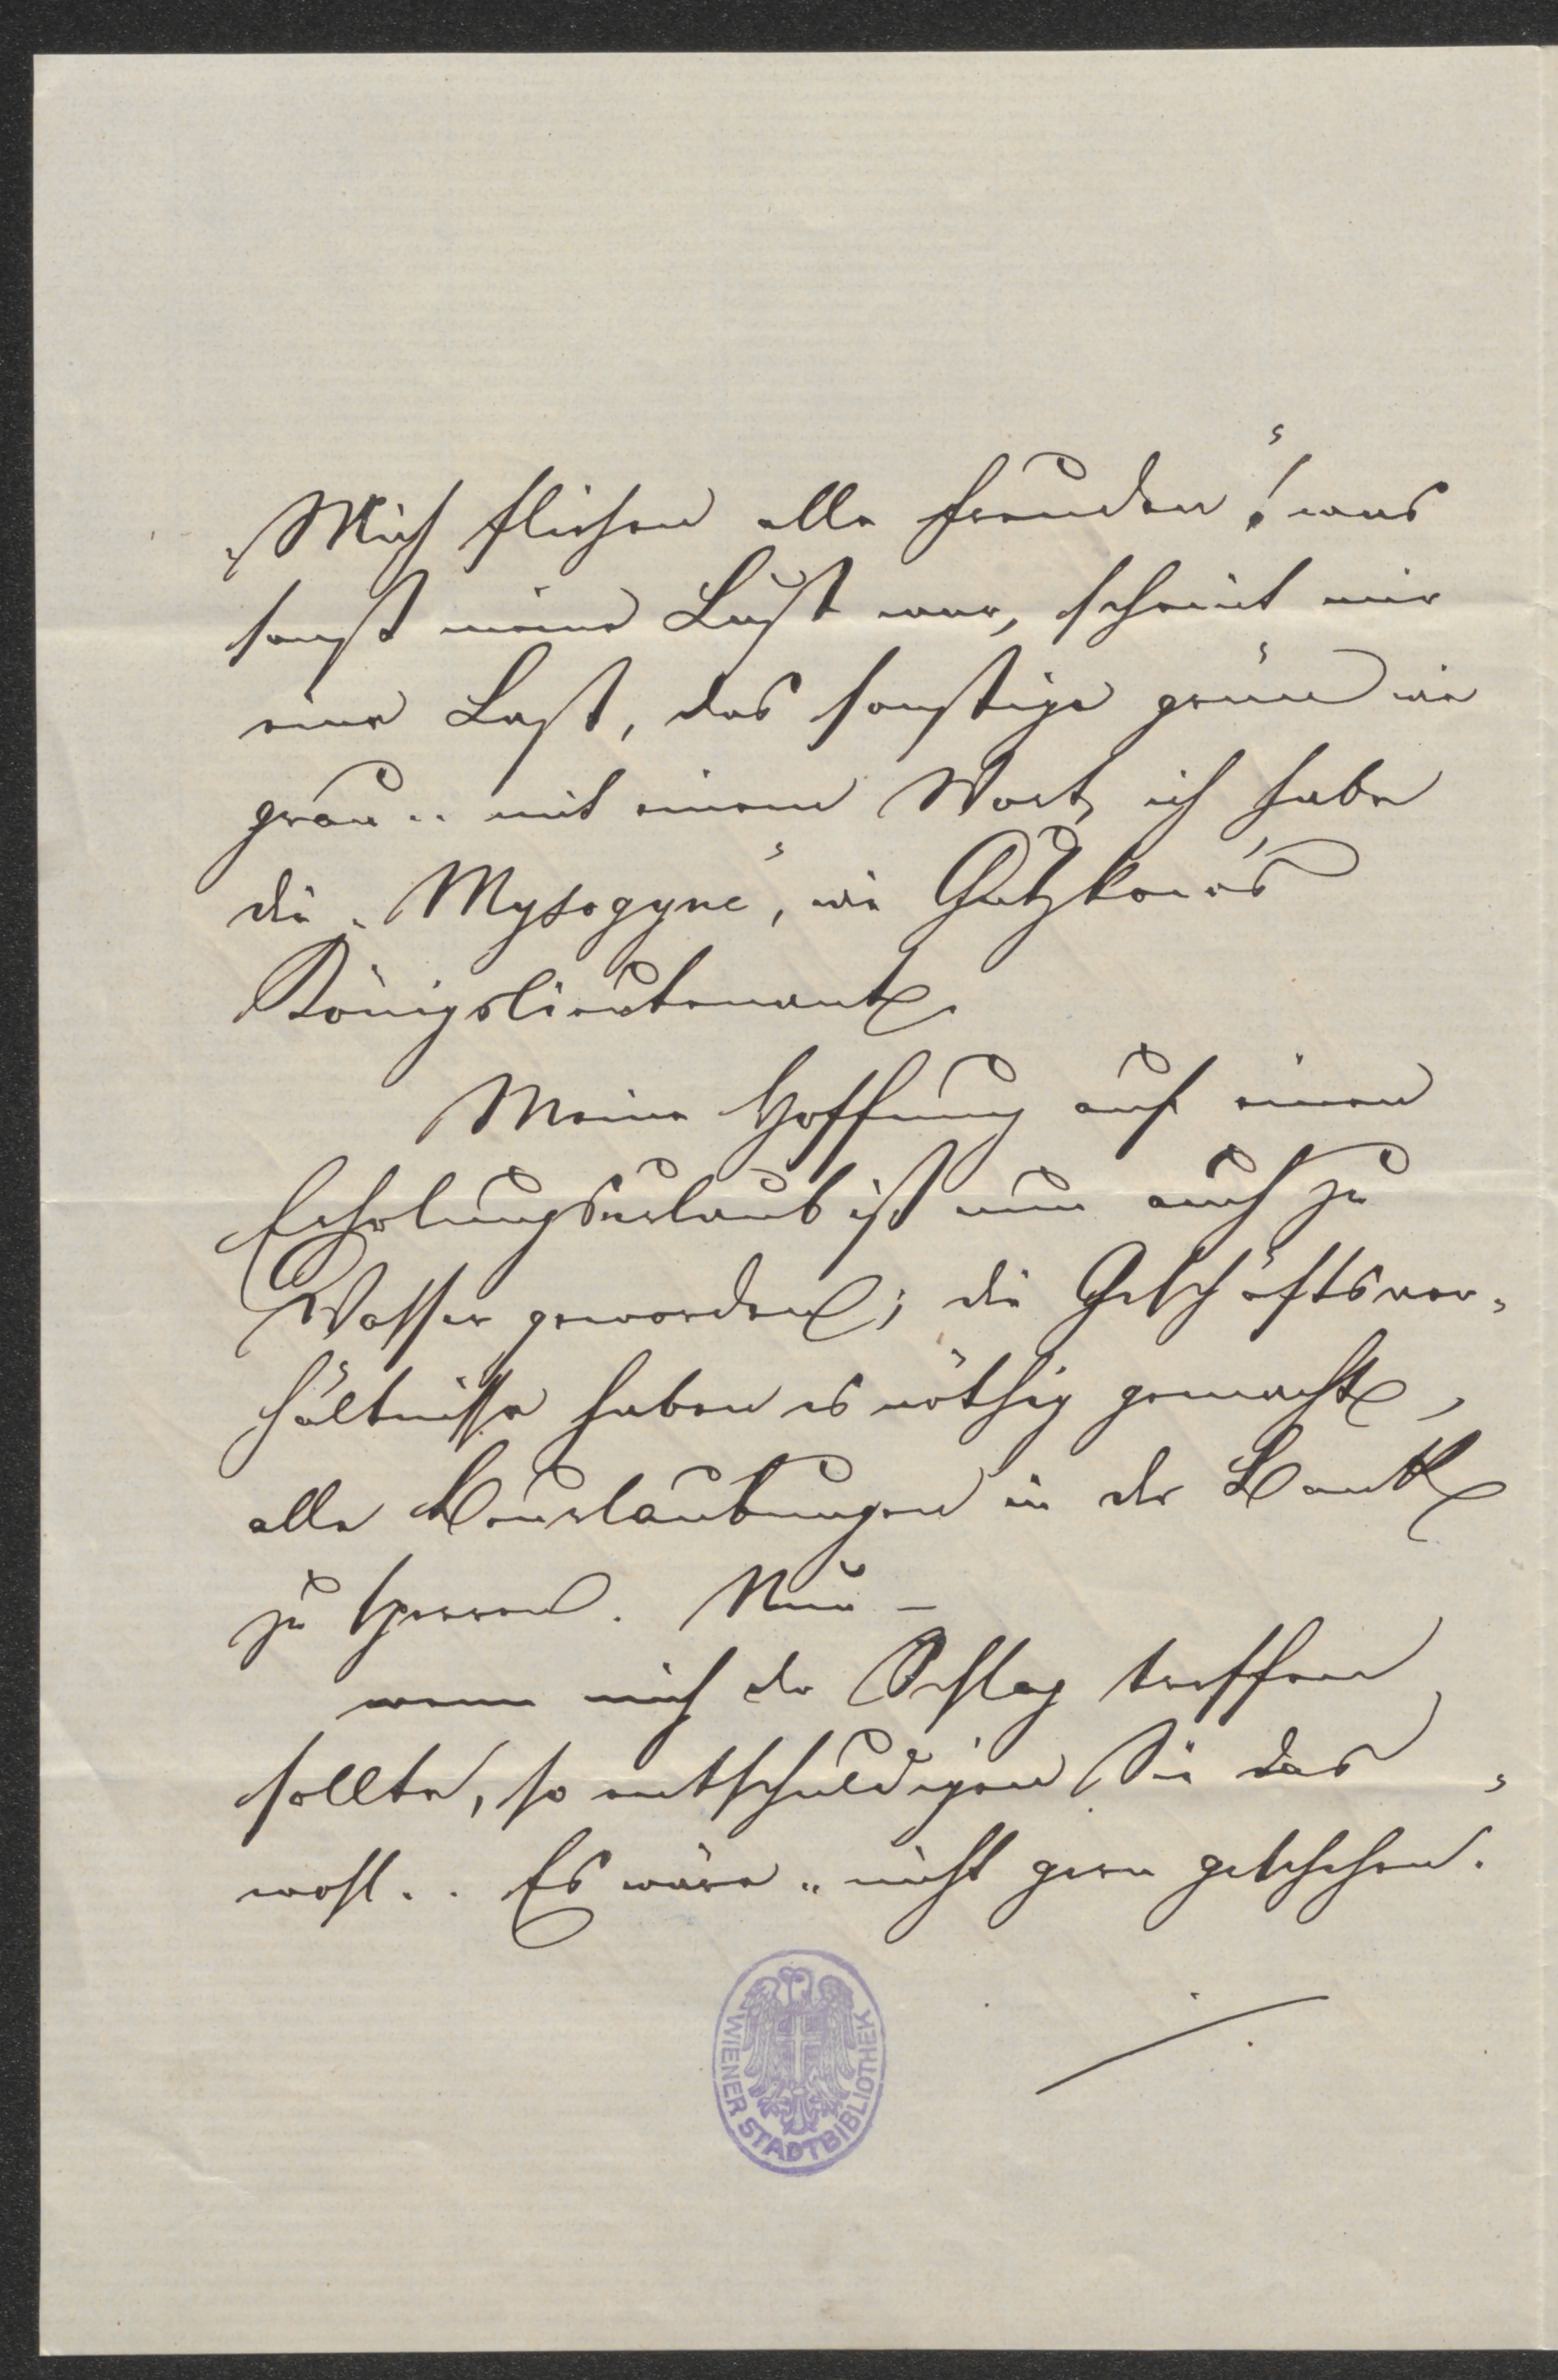 „Mich fliehen alle Freuden“! was
sonst meine Lust war, scheint mir
eine Last, das sonstige grün wie
grau .. mit einem Wort, ich habe
die „Mysogyne“, wie Gutzkow's
Königslieutenant.
Meine Hoffnung auf einen
Erholungsurlaub ist nun auch zu
Wasser geworden; die Geschäftsver-
hältnisse haben es nöthig gemacht,
alle Beurlaubungen in der Bank
zu sperren. Nun –
wenn mich der Schlag treffen
sollte, so entschuldigen Sie das
wohl .. Es wäre „nicht gern geschehen.
WIENER STADTBIBLIOTHEK